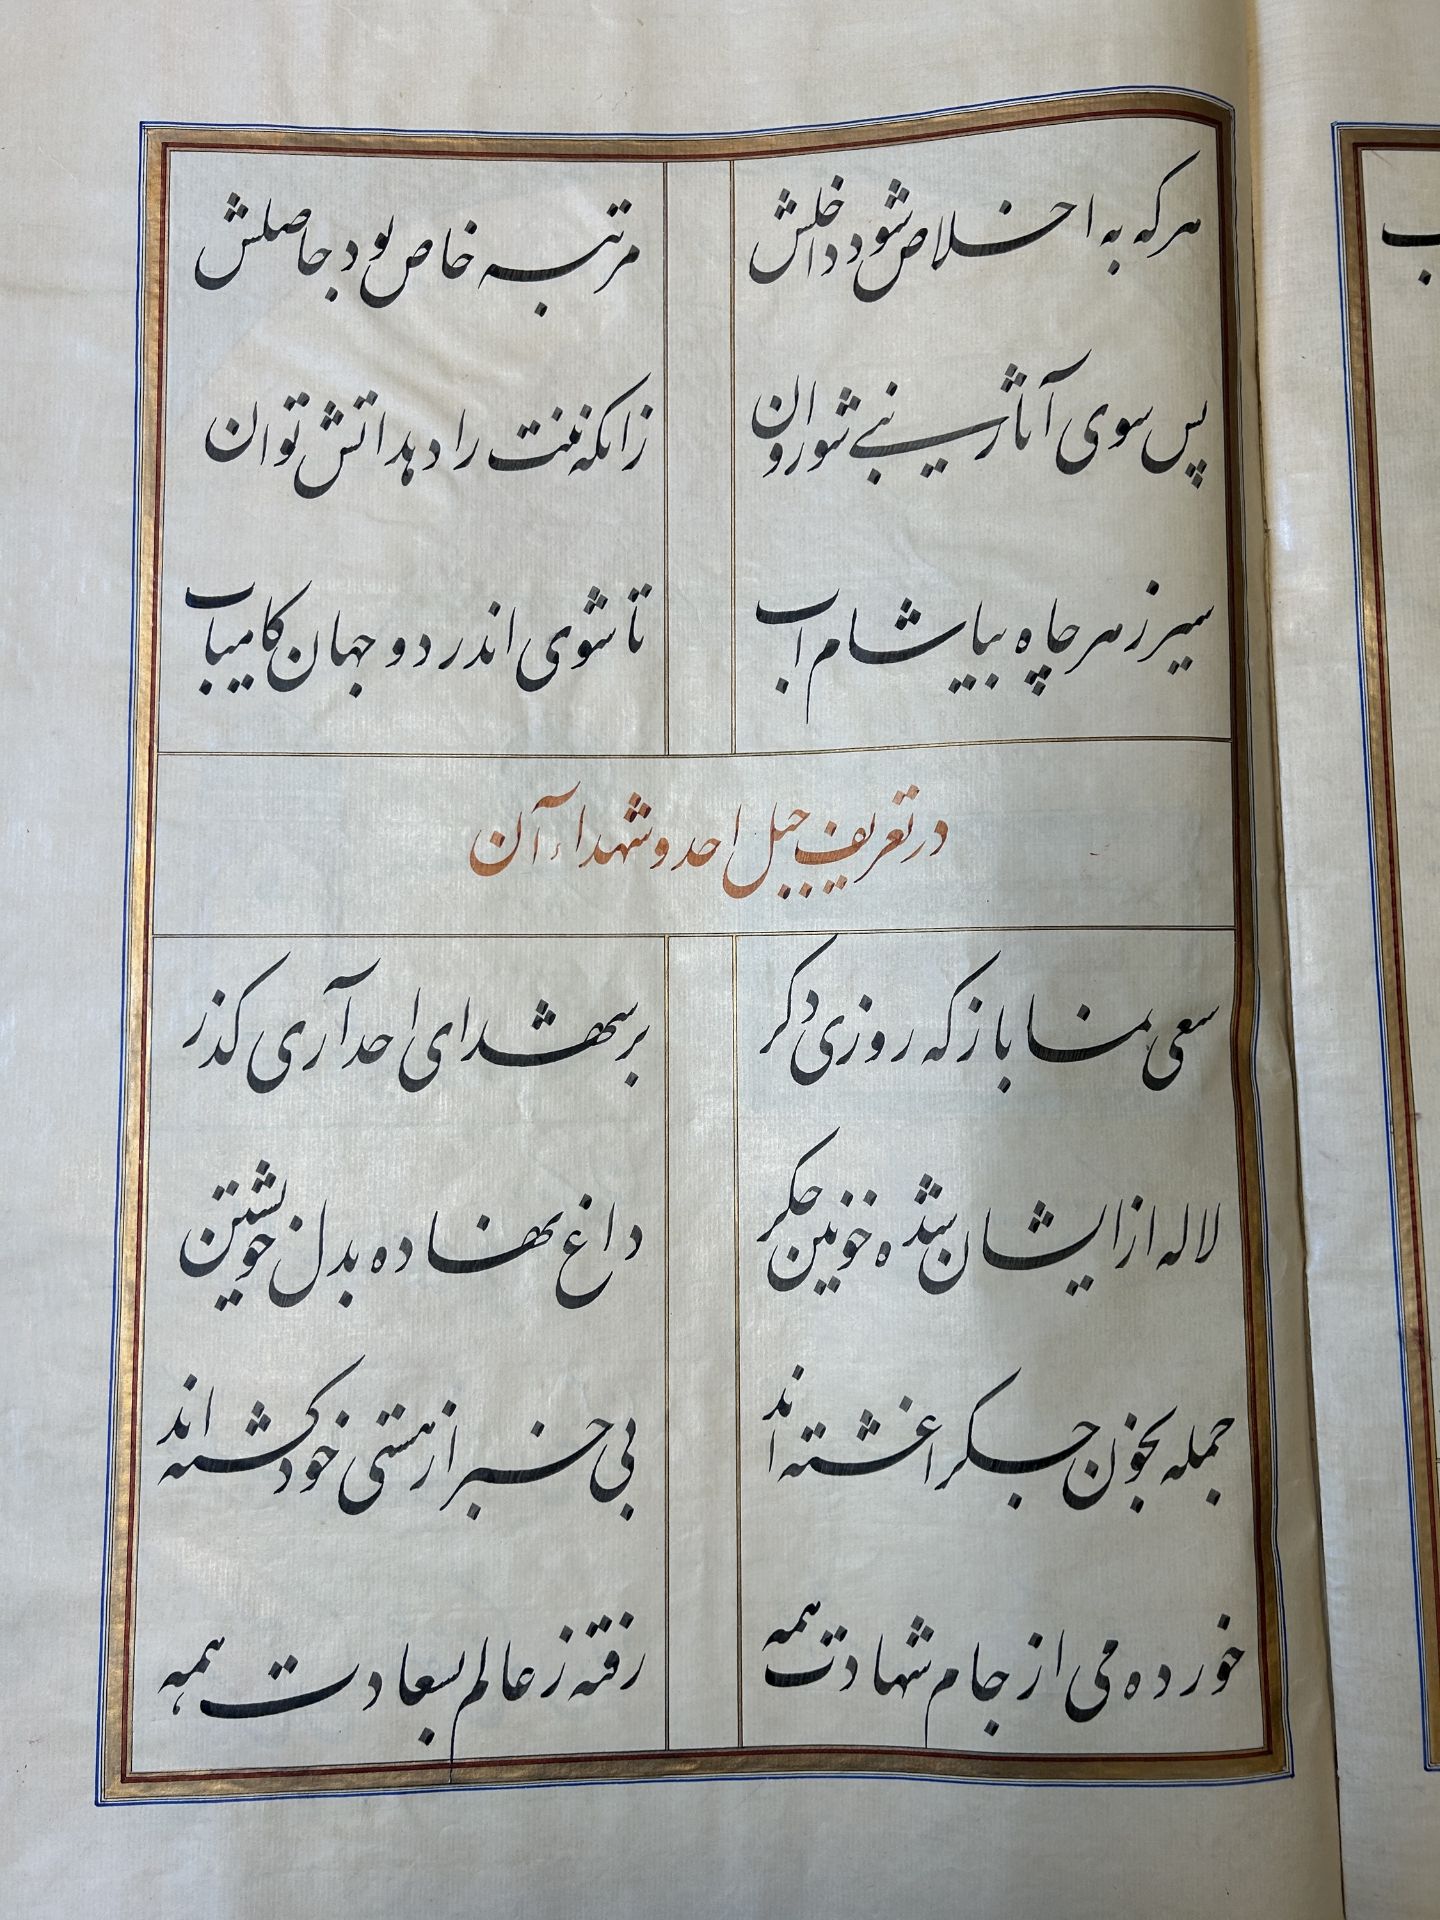 هر که به اخلاص شود داخلش مرتبه خاص بود حاصلش
پس سوی آثار نبی شو روان زانکه تنت را دهد اتش توان
سیر ز هر چاه بیاشام اب تا شوی اندر دو جهان کامیاب
در تعریف جبل احد و شهداء آن
سعی نما باز که روزی دکر بر شهدای احد آری کذر
لاله از ایشان شده خونین جکر داغ نهاده بدل خویشتن
جمله بخون جکر اغشته اند بی خبر از هستی خود کشته اند
خورده می از جام شهادت همه رفته ز عالم بسعادت همه